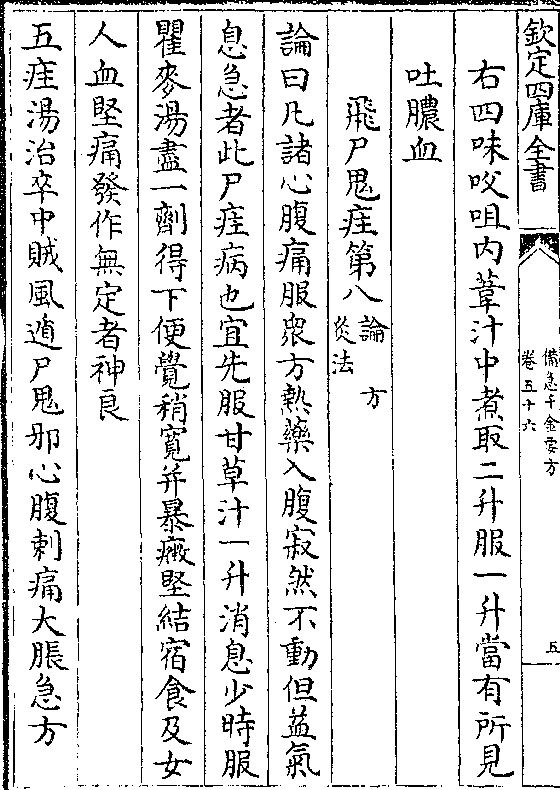 欽定四庫全書
備急千金要方
卷五十六
五
右四味㕮咀内葦汁中煮取二升服一升當有所見
吐膿血
飛尸鬼疰第八
論
方
灸法
論曰凡諸心腹痛服衆方熱藥入腹寂然不動但益氣
息急者此尸疰病也宜先服甘草汁一升消息少時服
瞿麥湯盡一劑得下便覺稍寛并暴癥堅結宿食及女
人血堅痛發作無定者神良
五疰湯治卒中賊風遁尸鬼邪心腹刺痛大脹急方